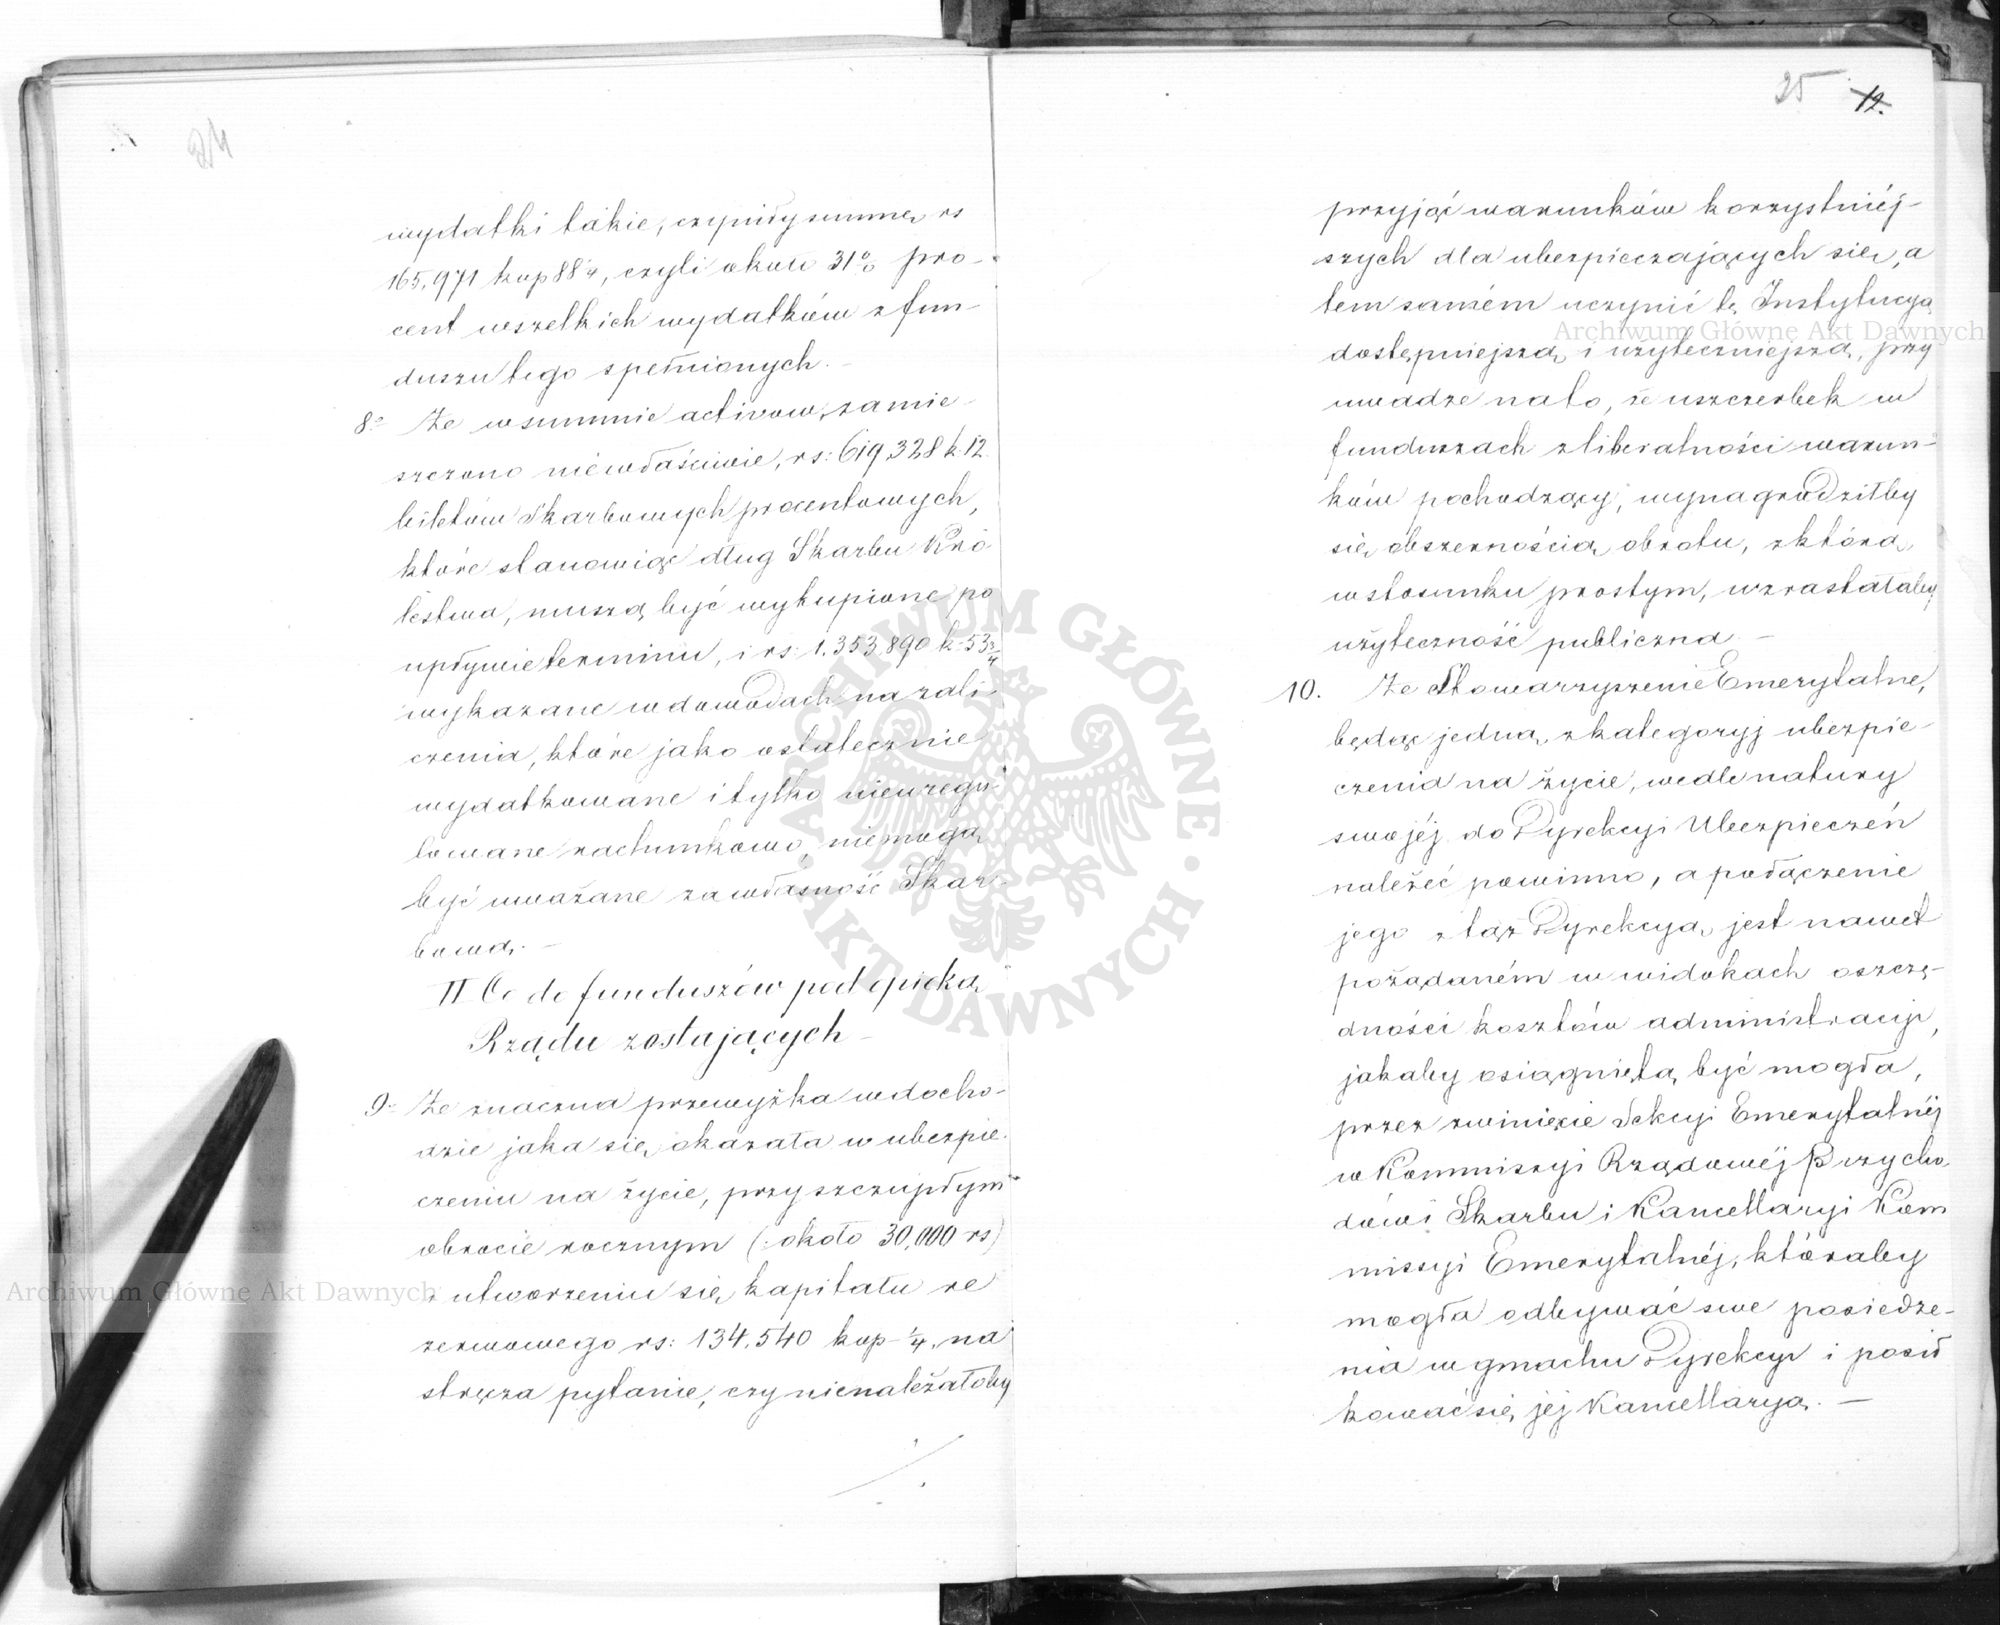 24
wydatki takie, czyniły summę rs
165,971 kop 88¼, czyli około 31% pro-
cent wszelkich wydatków z fun-
duszu tego spełnionych. -
8o Że w summie activow, zamie-
szczono niewłaściwie, rs: 619,328 k 12
biletów Skarbowych procentowych,
które stanowiąc dług Skarbu Kró
lestwa, muszą być wykupione po
upływie terminu, i rs: 1.353,890 k: 53¾
wykazane w dowodach na zali-
czenia, które jako ostatecznie
wydatkowane i tylko nieuregu
lowane rachunkowo, niemogą
być uważane za własność Skar-
bową. -
II Co do funduszów pod opieką
Rządu zostających -
9o Że znaczna przewyżka w docho-
dzie jaka się okazała w ubezpie-
czeniu na życie, przy szczupłym
obrocie rocznym (: około 30,000 rs)
utworzeniu się kapitału re
zerwowego rs: 134,540 kop ¼, na
stręcza pytanie, czy nienależałoby
25 12.
przyjąć warunków korzystniéj-
szych dla ubezpieczających się, a
tem samém uczynić tę Instytucyą
dostępniejszą i użyteczniejszą, przy
uwadze na to, że uszczerbek w
funduszach z liberalności warun-
ków pochodzący, wynagrodziłby
się obszernością obrotu, z którą,
w stosunku prostym, wzrastałaby
użyteczność publiczna -
10. Że Stowarzyszenie Emerytalne,
będąc jedną z kategoryj ubezpie-
czenia na życie, wedle natury
swojéj do Dyrekcyi Ubezpieczeń
należeć powinno, a połączenie
jego z tąż Dyrekcyą, jest nawet
pożądaném w widokach oszczę-
dności kosztów administracyi,
jakaby osiągniętą być mogła,
przez zwinięcie Sekcyi Emerytalnéj
w Kommissyi Rządowéj Przycho
dów i Skarbu i Kancellaryi Kom
missyi Emerytalnéj, któraby
mogła odbywać swe posiedze-
nia w gmachu Dyrekcyi i posił
kować się jéj Kancellaryą. -
Archiwum Główne Akt Dawnych
Archiwum Główne Akt Dawnych
ARCHIWUM GŁÓWNE AKT DAWNYCH